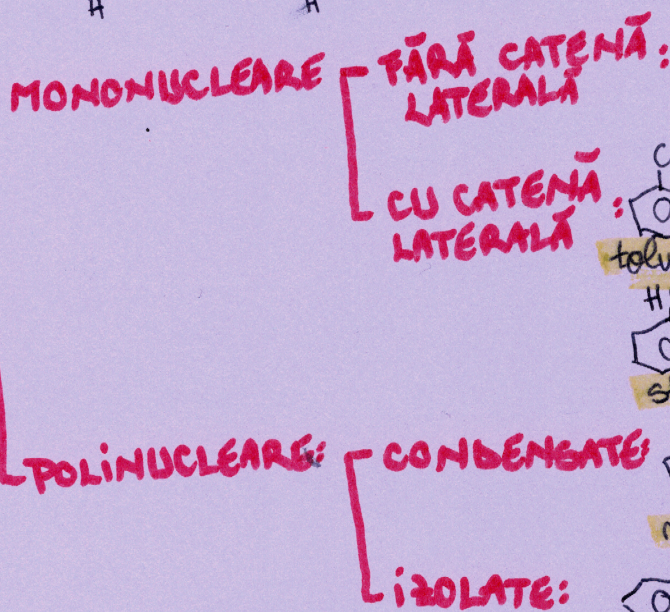 H H
MONONUCLEARE
FĂRĂ CATENĂ:
LATERALĂ
CU CATENĂ
LATERALĂ :
C
H
POLINUCLEARE:
CONDENSATE:
iZOLATE: